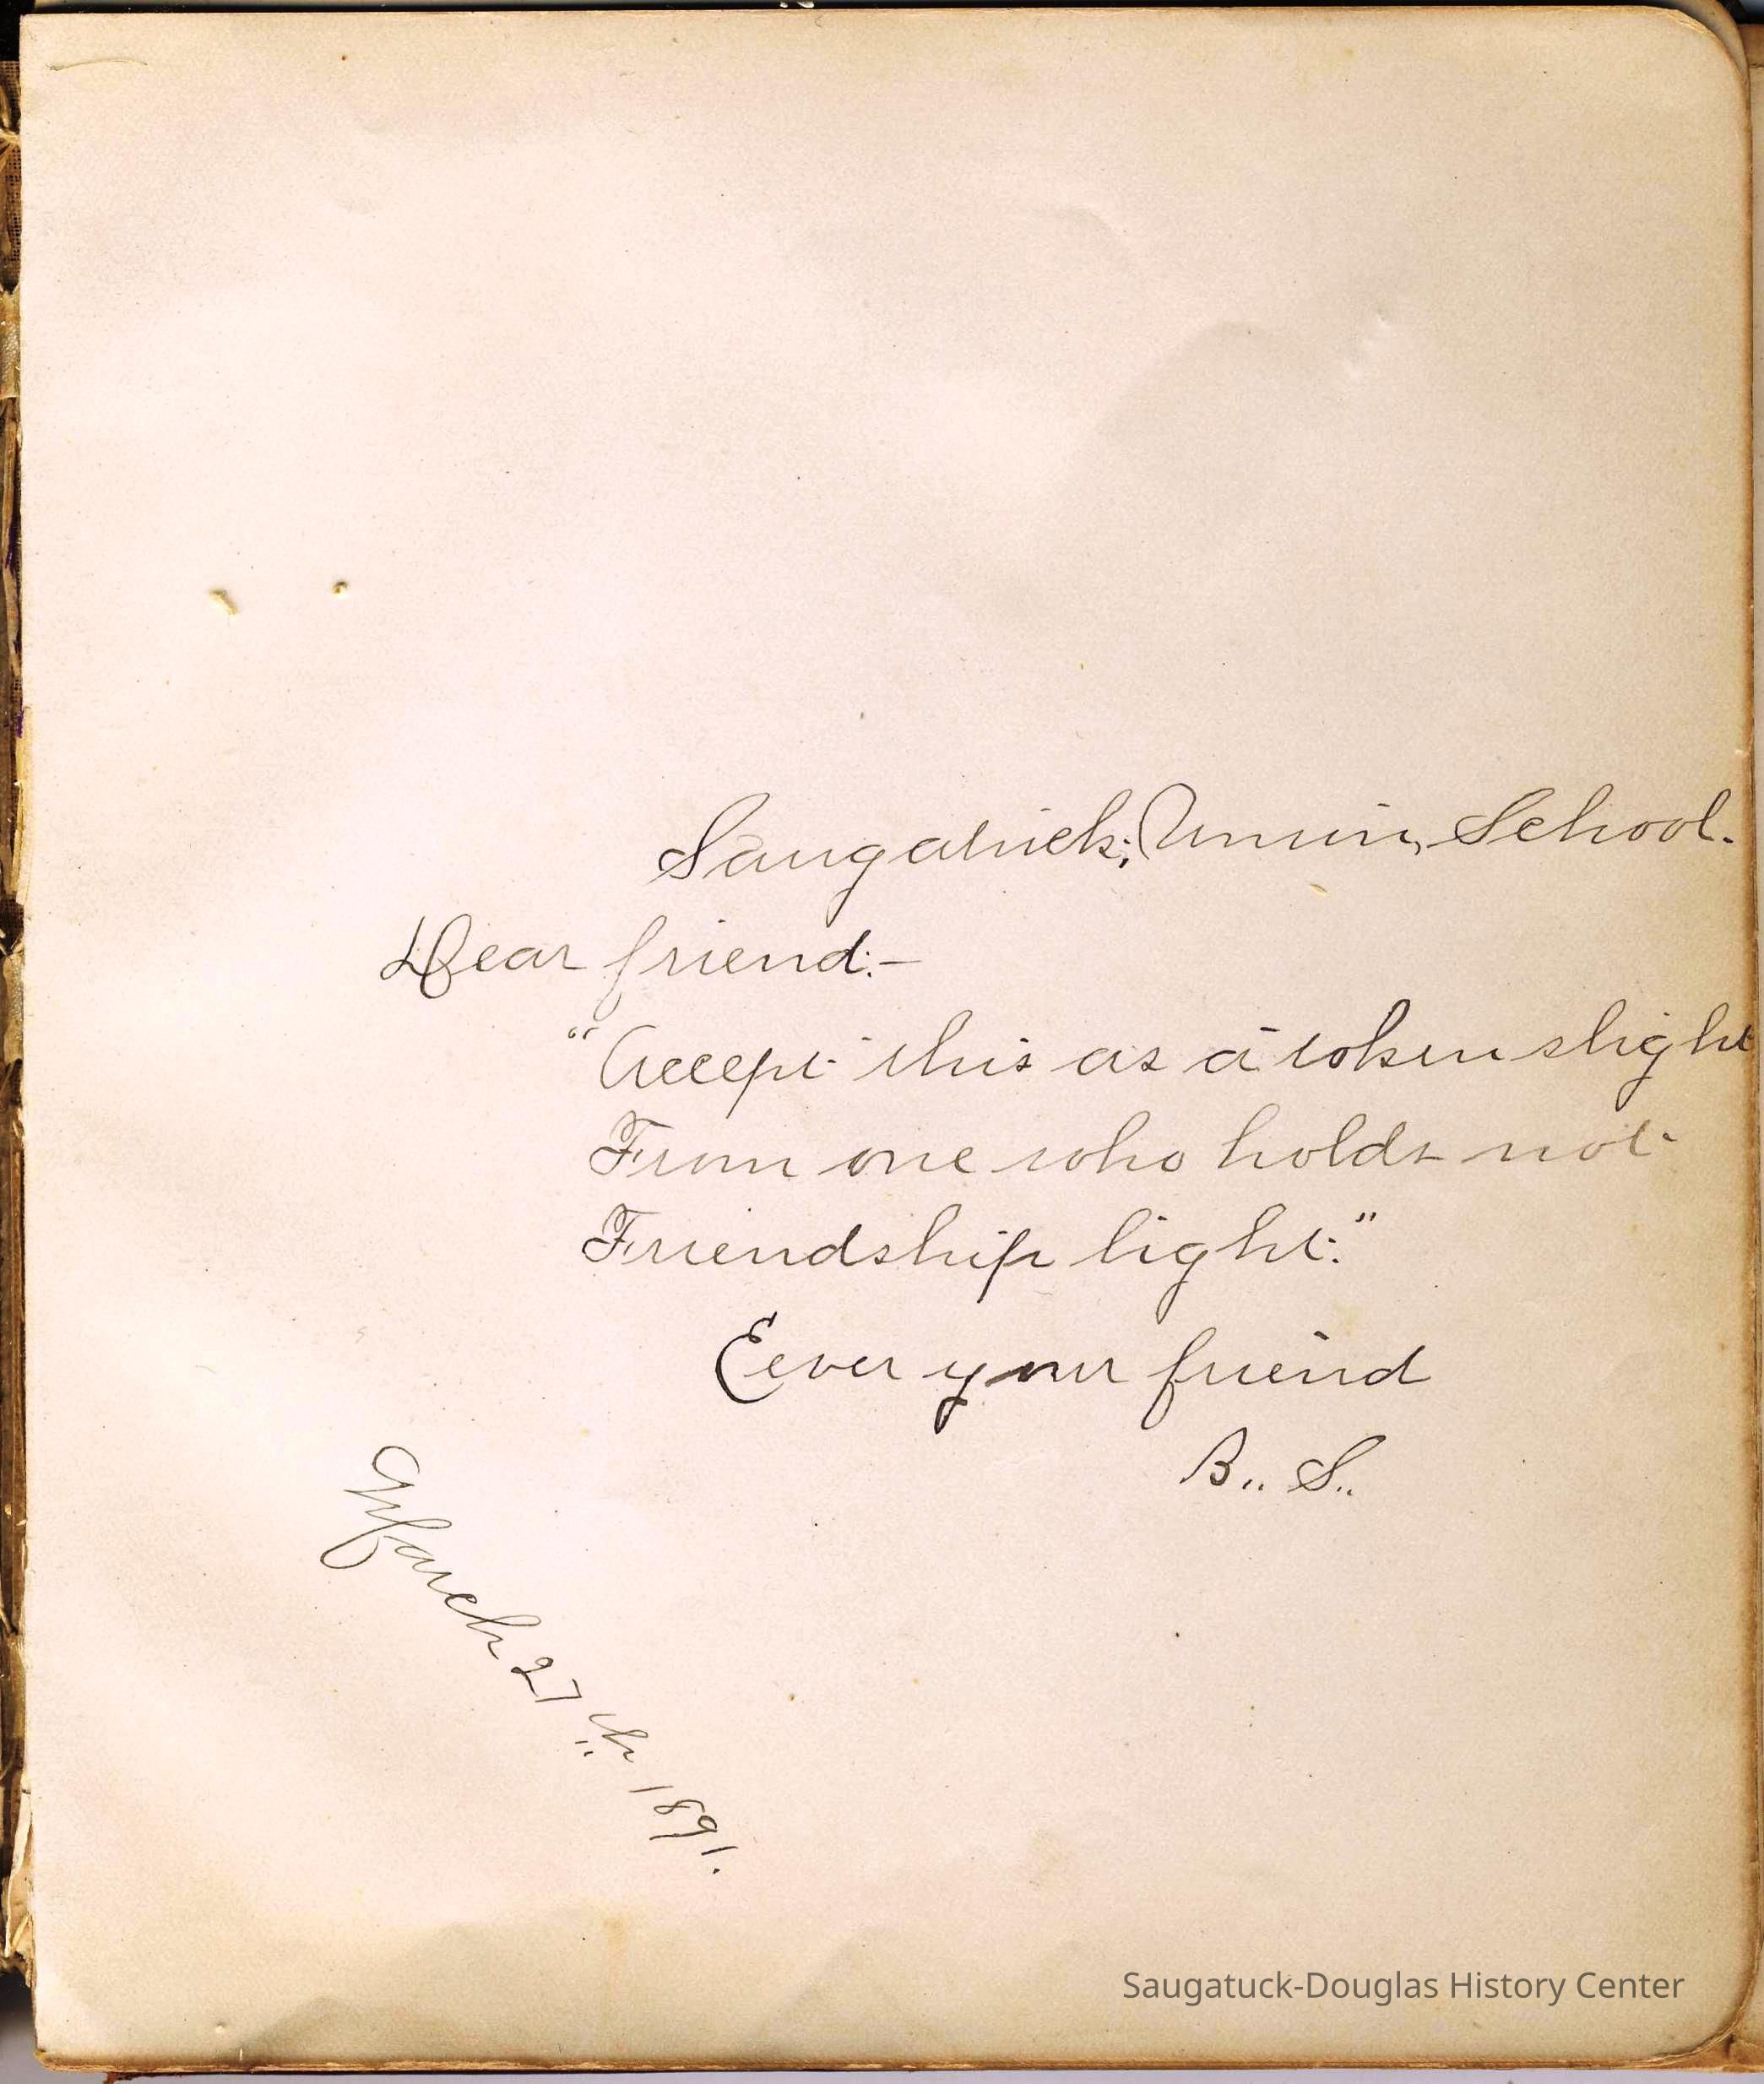 Saugatuck, Union, School.
Dear friend:-
"Accept this as a token slight
From one who holds not
Friendship light."
Eever your friend
B.. S..
March 27th 1891.
Saugatuck-Douglas History Center